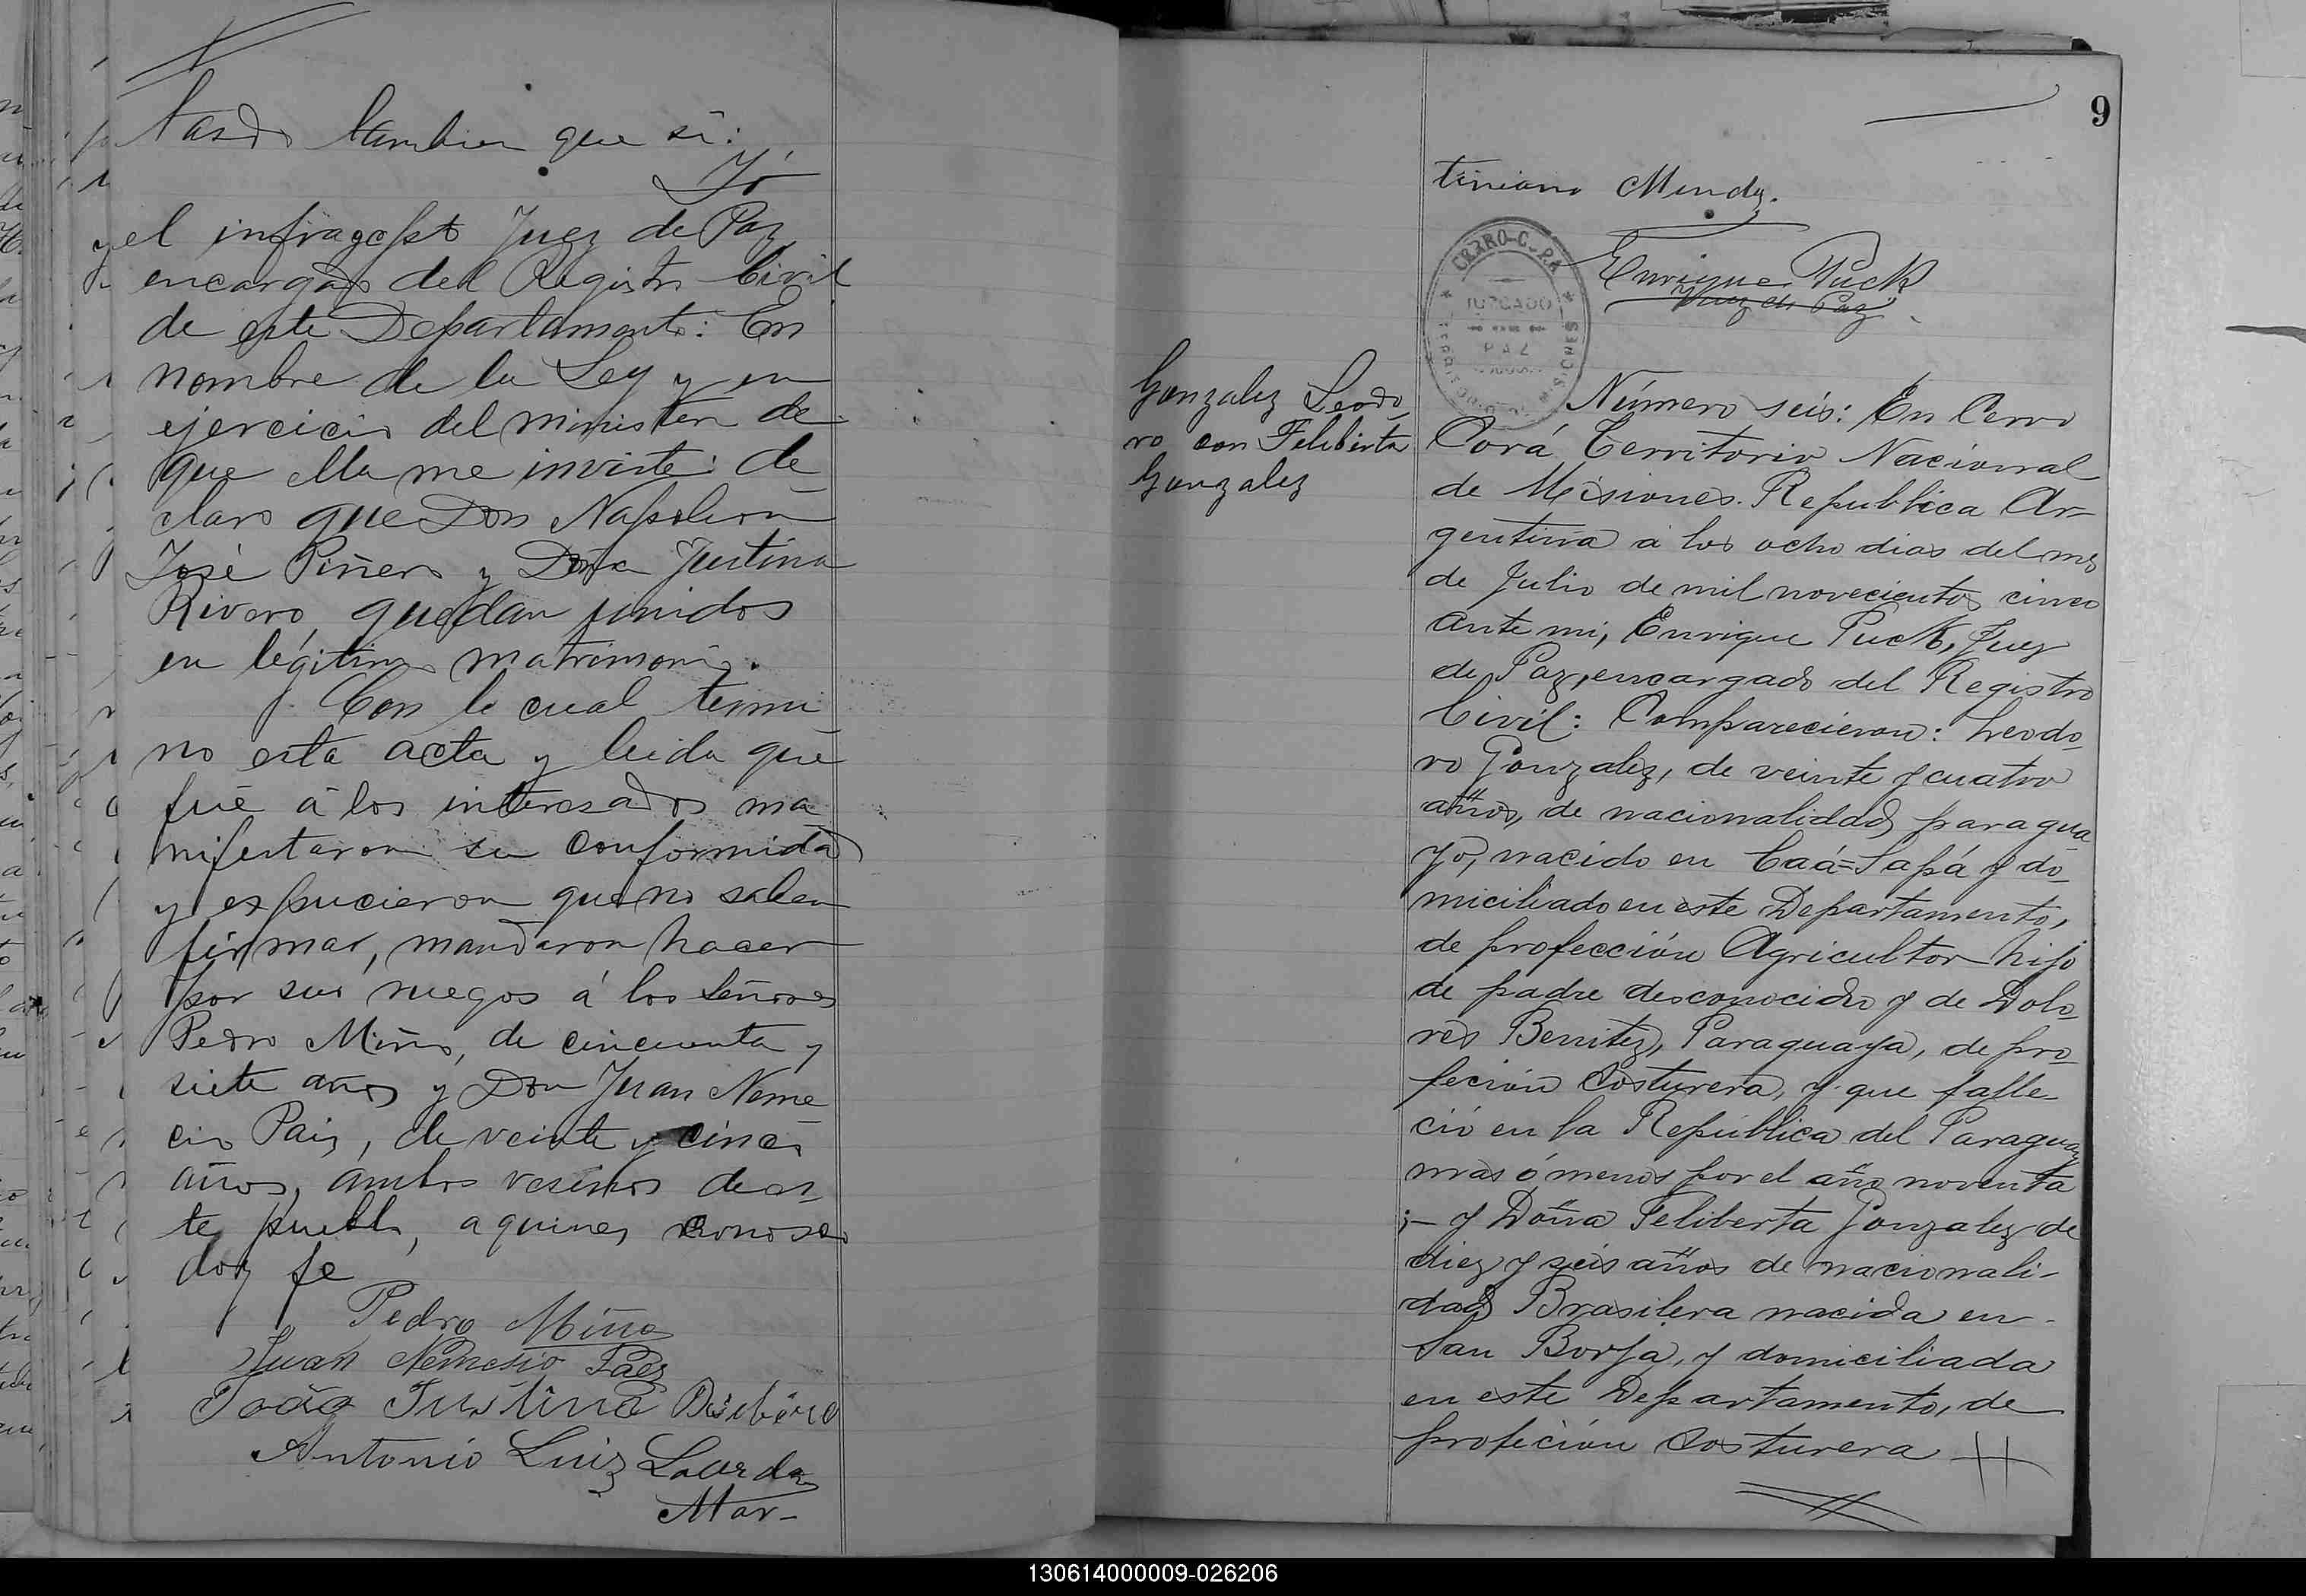 tando tambien que sí:
Yó
el infragosto Juez de Paz
encargado del Registro Civil
de este Departamento: En
nombre de la Ley y en
ejercicio del ministerio de
que ella me inviste: de
claro que Don Napoleon
José Piñero y Doña Justina
Rivero, quedan unidos
en légitimo matrimonio.
Con lo cual termi
no esta acta y leida que
fué á los interesados ma
nifestaron su conformidad
y expucieron que no saben
firmar, mandaron hacer
por sus ruegos á los Señores
Pedro Miño, de cincuenta y
siete años y Don Juan Neme
cio Paiz, de veinte y cinco
años, ambos vesinos de es
te pueblo, a quines conosco
doy fe
Pedro Miño
Juan Nemesio Páez
João Justino
Antonio Luiz
Mar-
9
tiniano Mendez.
Enrique Puck
Juez de Paz
CERRO-CORÁ
JUZGADO
PAZ
MISIONES
Gonzalez Leodo
ro con Feliberta
Gonzalez
Número seis: En Cerro
Corá Territorio Nacional
de Misiones. Republica Ar=
gentina á los ocho dias del mes
de Julio de mil novecientos cinco
ante mi, Enrique Puck, Juez
de Paz, encargado del Registro
Civil: Comparecieron: Leodo-
ro Gonzalez, de veinte y cuatro
años, de nacionalidad paragua
yo, nacido en Caá=Sapá y do-
miciliado en este Departamento,
de profección Agricultor hijo
de padre desconocido y de Dolo-
res Benitez, Paraguaya, de pro-
feción Costurera, y que falle-
ció en la República del Paraguay
mas ó menos por el año noventa
;- y Doña Feliberta Gonzalez de
diez y seis años de nacionali-
dad Brasilera nacida en
San Borja, y domiciliada
en este Departamento, de
profeción Costurera
130614000009-026206